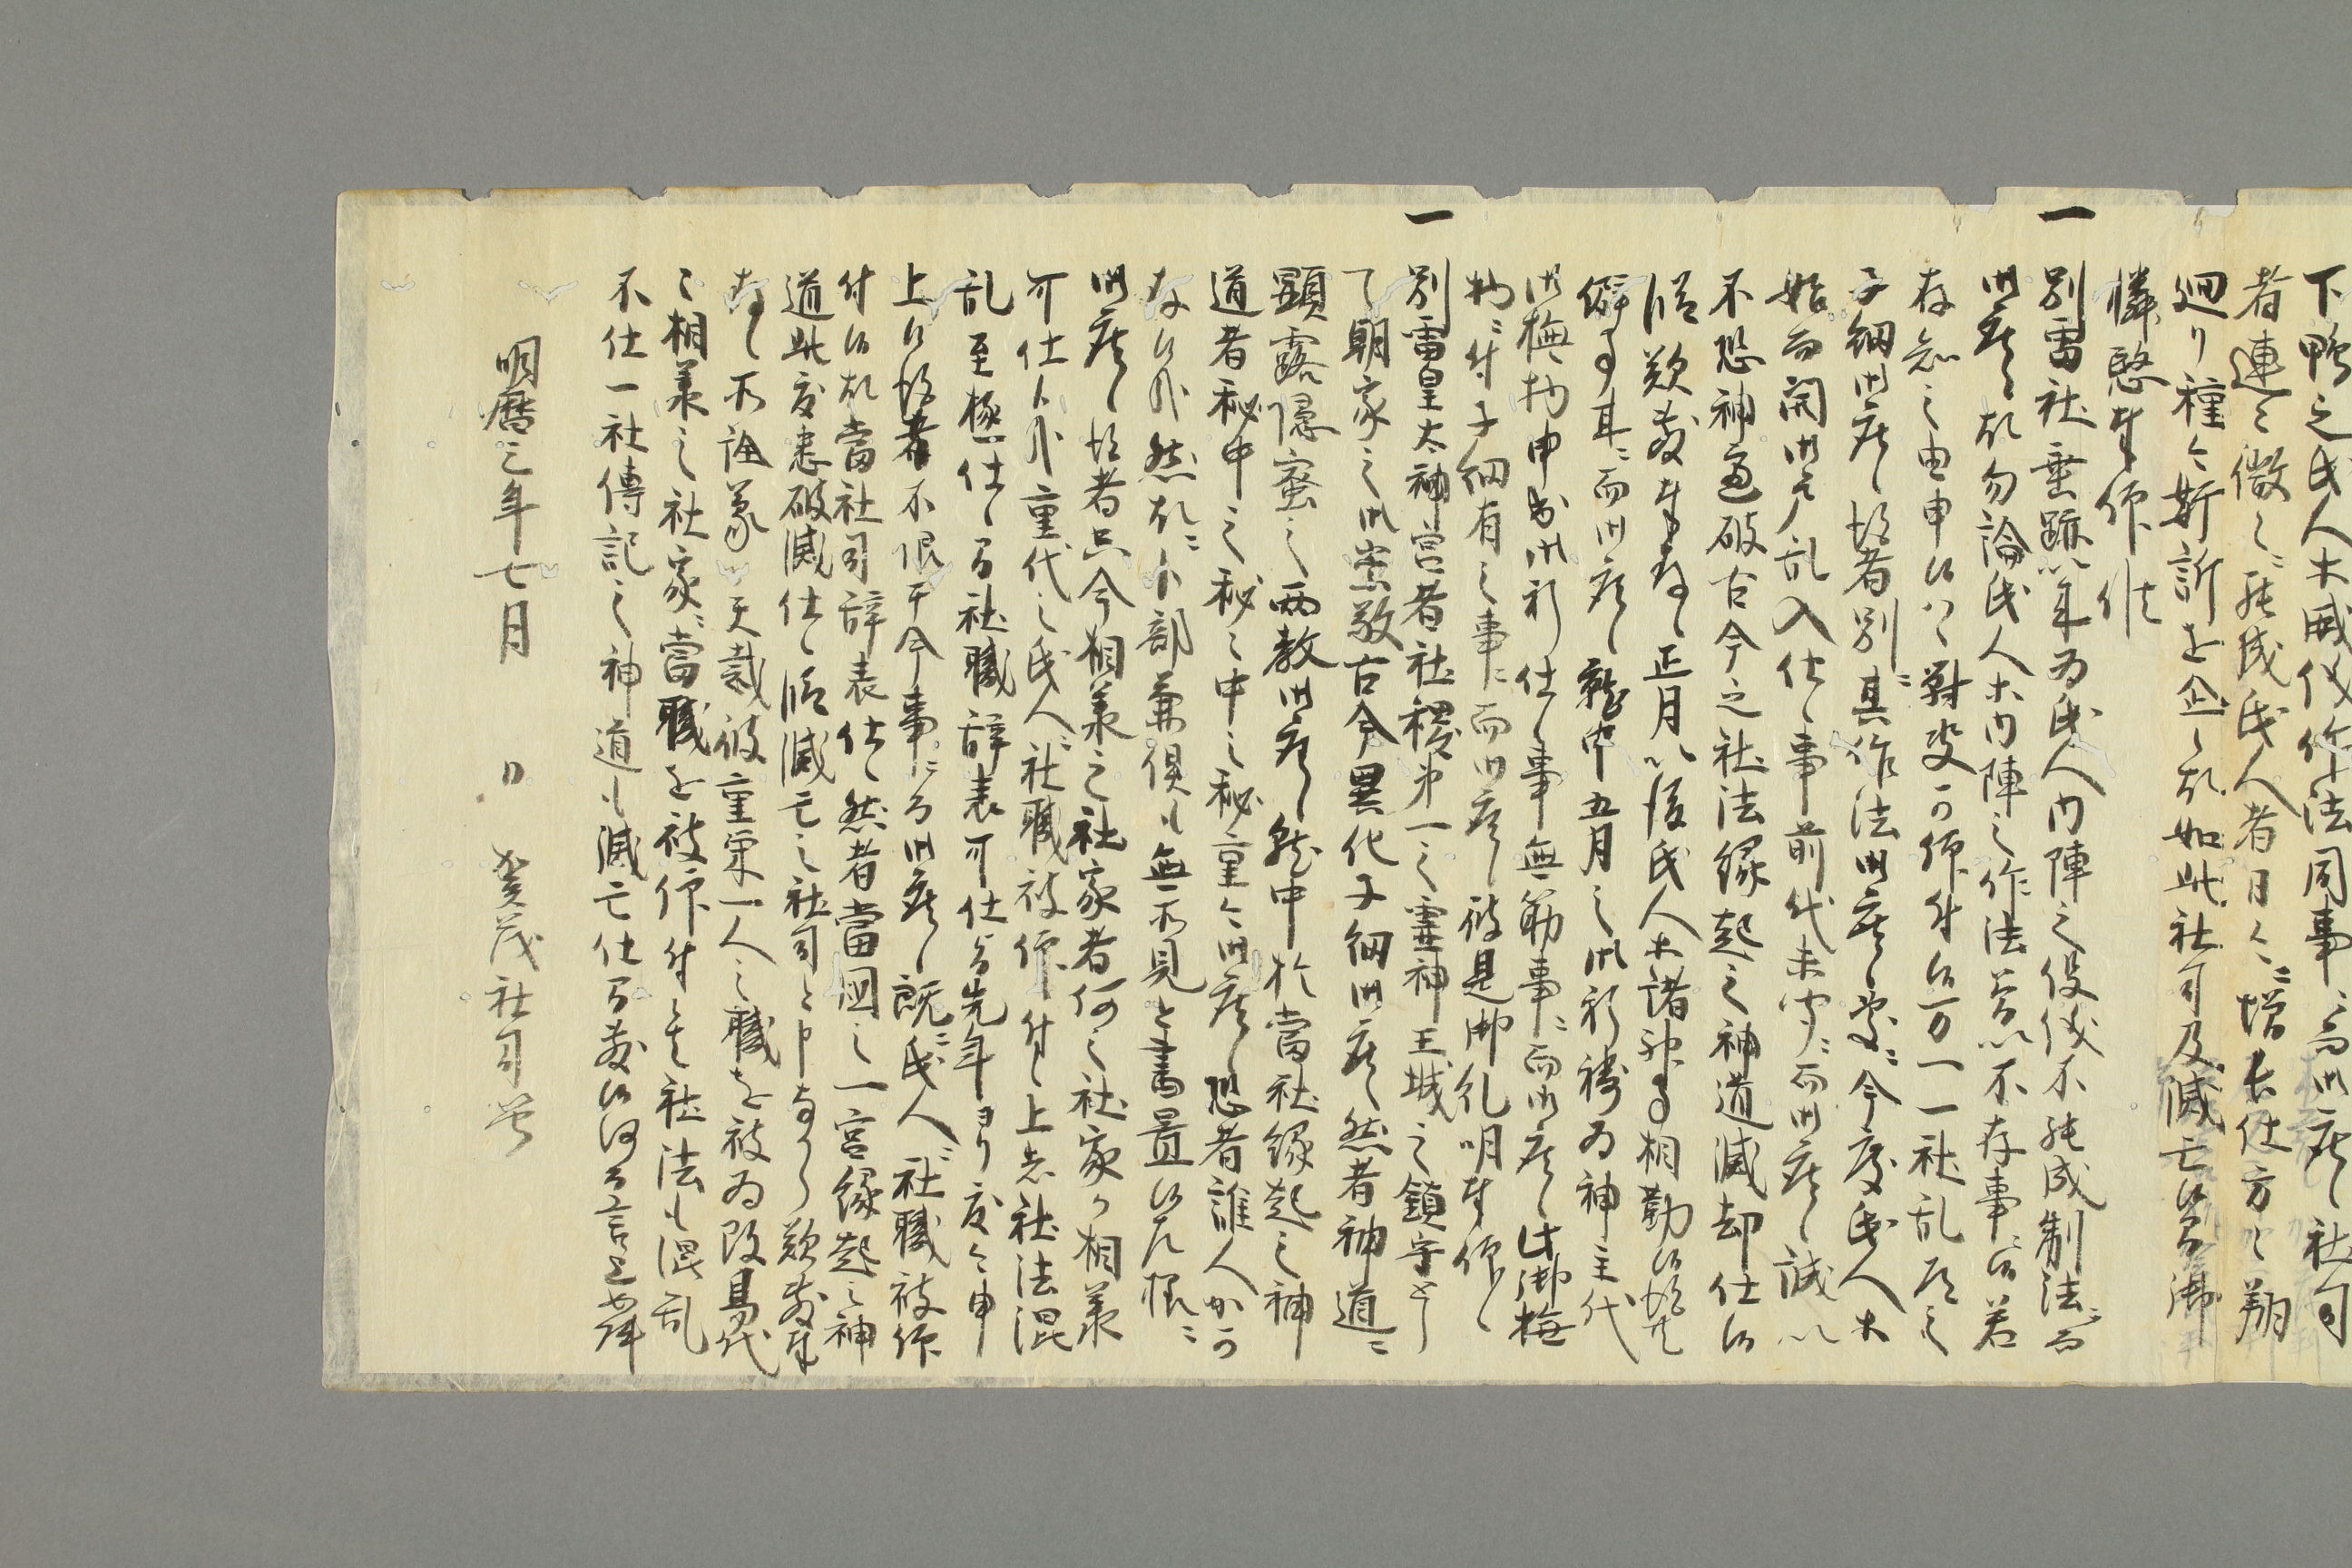 下鴨之氏人木威儀作法同事ニ而御座候社司
者連々微々ニ罷成氏人者日々ニ増長仕方々翔
廻り種々新訴を企候故如此社司及滅亡候間御
憐愍奉仰候
一別雷社垂跡以来為氏人内陣之役儀不罷成制法ニ而
御座候故勿論氏人等内陣之作法曽以不存事ニ候若
存知之由申候ハヽ對決可仰付候万一一社乱尽之
子細御座候得者別ニ其作法御座候処ニ今度氏人等
始而開御戸乱入仕候事前代未聞ニ而御座候誠以
不恐神慮破古今之社法縁起之神道滅却仕候
段歎敷奉存候正月以後氏人等諸神事相勤候得共
僻事耳ニ而御座候就中五月之御祈祷為神主代
御撫物申出御祈仕候事無筋事ニ而御座候此御撫
物ニ付子細有之事ニ而御座候彼是御糺明奉仰候
一別雷皇太神宮者社稷第一之霊神王城之鎮守と〆
朝家之御崇敬古今異他子細御座候然者神道ニ
顕露隠密之両教御座候就中於當社縁起之神
道者秘中之秘々中之秘重々御座候恐者誰人か可
存候哉然故ニ卜部兼倶も無所見と書置候左様ニ
御座候得者只今相承之社家者何之社家ゟ相承
可仕候哉重代之氏人ニ社職被仰付候上者社法混
乱至極仕候間社職辞表可仕与先年ヨリ度々申
上候得者不限于今事ニ而御座候既ニ氏人ニ社職被仰
付候故當社司辞表仕候然者當国之一宮縁起之神
道此度悉破滅仕候段滅亡之社司と申なから歎敷奉
存候不論蒙天裁彼重栄一人之職を被為改易代
々相承之社家ニ當職を被仰付候者社法も混乱
不仕一社傳記之神道も滅亡仕間敷候仍言上如件
明暦三年七月　日　賀茂社司等